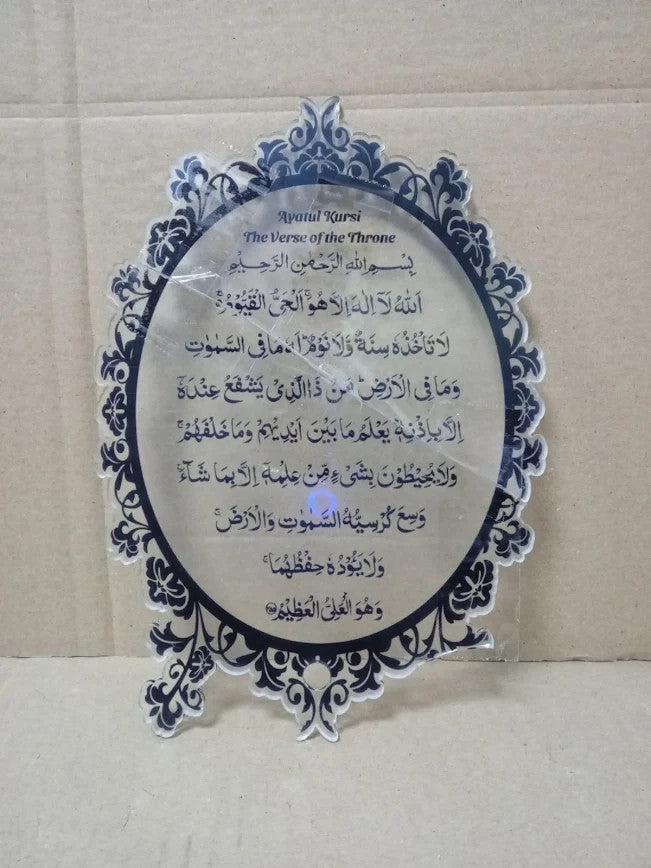 Ayatul Kursi
The Verse of the Throne
بِسْمِ اللهِ الرَّحْمٰنِ الرَّحِيْمِ
اَللهُ لَآ اِلٰهَ اِلَّا هُوَ ۚ اَلْحَيُّ الْقَيُّوْمُ ۚ
لَا تَاْخُذُهٗ سِنَةٌ وَّلَا نَوْمٌ ؕ لَهٗ مَا فِى السَّمٰوٰتِ
وَمَا فِى الْاَرْضِ ؕ مَنْ ذَا الَّذِىْ يَشْفَعُ عِنْدَهٗٓ
اِلَّا بِاِذْنِهٖ ؕ يَعْلَمُ مَا بَيْنَ اَيْدِيْهِمْ وَمَا خَلْفَهُمْ ۚ
وَلَا يُحِيْطُوْنَ بِشَىْءٍ مِّنْ عِلْمِهٖٓ اِلَّا بِمَا شَآءَ ۚ
وَسِعَ كُرْسِيُّهُ السَّمٰوٰتِ وَالْاَرْضَ ۚ
وَلَا يَـُٔوْدُهٗ حِفْظُهُمَا ۚ
وَهُوَ الْعَلِىُّ الْعَظِيْمُ